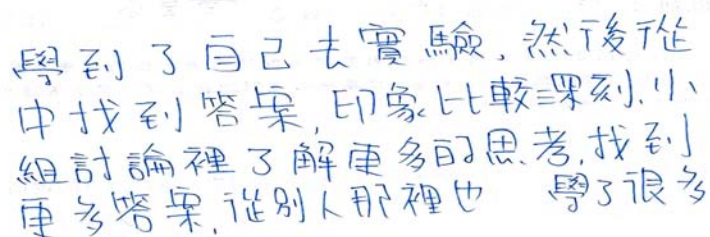 學到了自己去實驗,然後從
中找到答案,印象比較深刻.小
組討論裡了解更多的思考,找到
更多答案,從別人那裡也 學了很多